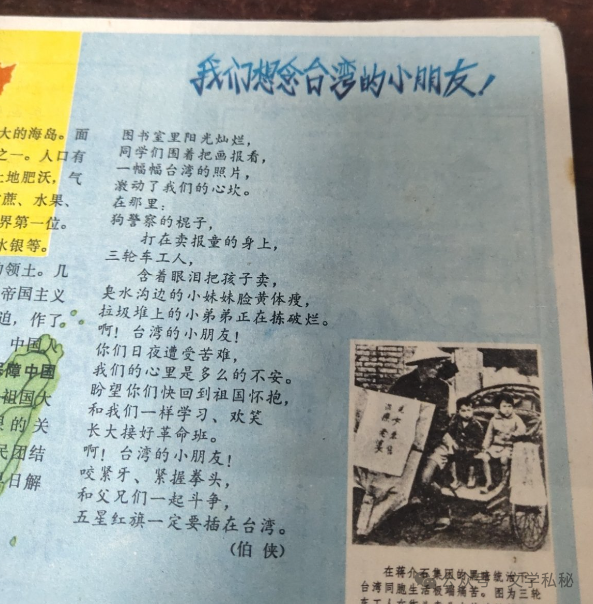 我们想念台湾的小朋友！
大的海岛。面
之一。人口有
土地肥沃，气
蔗、水果、
界第一位。
水银等。
领土。几
帝国主义
迫，作了
中国人
障中国
祖国大
的关
民团结
日解
图书室里阳光灿烂，
同学们围着把画报看，
一幅幅台湾的照片，
激动了我们的心坎。
在那里：
狗警察的棍子，
打在卖报童的身上，
三轮车工人，
含着眼泪把孩子卖，
臭水沟边的小妹妹脸黄体瘦，
垃圾堆上的小弟弟正在拣破烂。
啊！台湾的小朋友！
你们日夜遭受苦难，
我们的心里是多么的不安。
盼望你们快回到祖国怀抱，
和我们一样学习、欢笑
长大接好革命班。
啊！台湾的小朋友！
咬紧牙、紧握拳头，
和父兄们一起斗争，
五星红旗一定要插在台湾。
（伯 侠）
在蒋介石集团的黑暗统治
台湾同胞生活极端痛苦。图为三轮
公众号·文学私秘